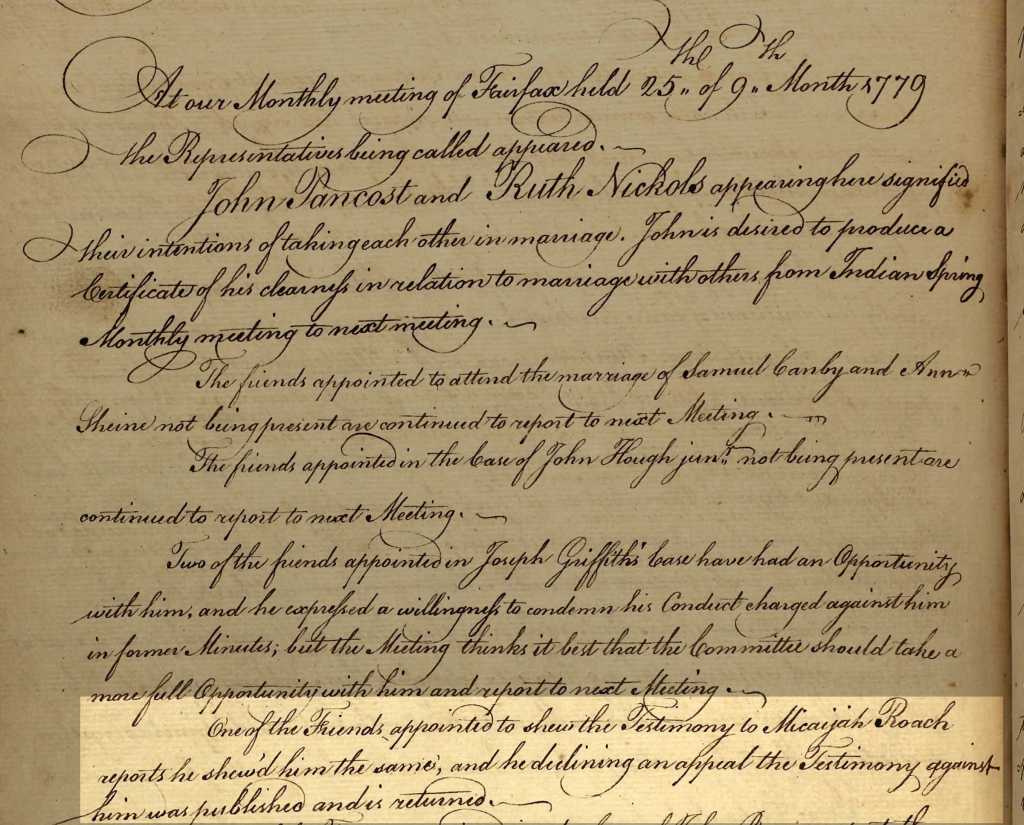 At our Monthly meeting of Fairfax held 25th of 9th Month 1779
the Representatives being called appeared.
John Pancost and Ruth Nickols appearing here signified
their intentions of taking each other in marriage. John is desired to produce a
Certificate of his clearness in relation to marriage with others from Indian Spring
Monthly meeting to next meeting.
The friends appointed to attend the marriage of Samuel Canby and Ann
Sheine not being present are continued to report to next Meeting.
The friends appointed in the Case of John Hough junr. not being present are
continued to report to next Meeting.
Two of the friends appointed in Joseph Griffith's Case have had an Opportunity
with him, and he expressed a willingness to condemn his Conduct charged against him
in former Minutes; but the Meeting thinks it best that the Committee should take a
more full Opportunity with him and report to next Meeting.
One of the Friends appointed to shew the Testimony to Micaijah Roach
reports he shew'd him the same, and he declining an appeal the Testimony against
him was published and is returned.